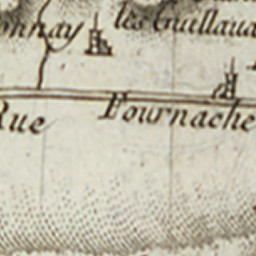 onnay
les Guillaua
Rue
Fournache